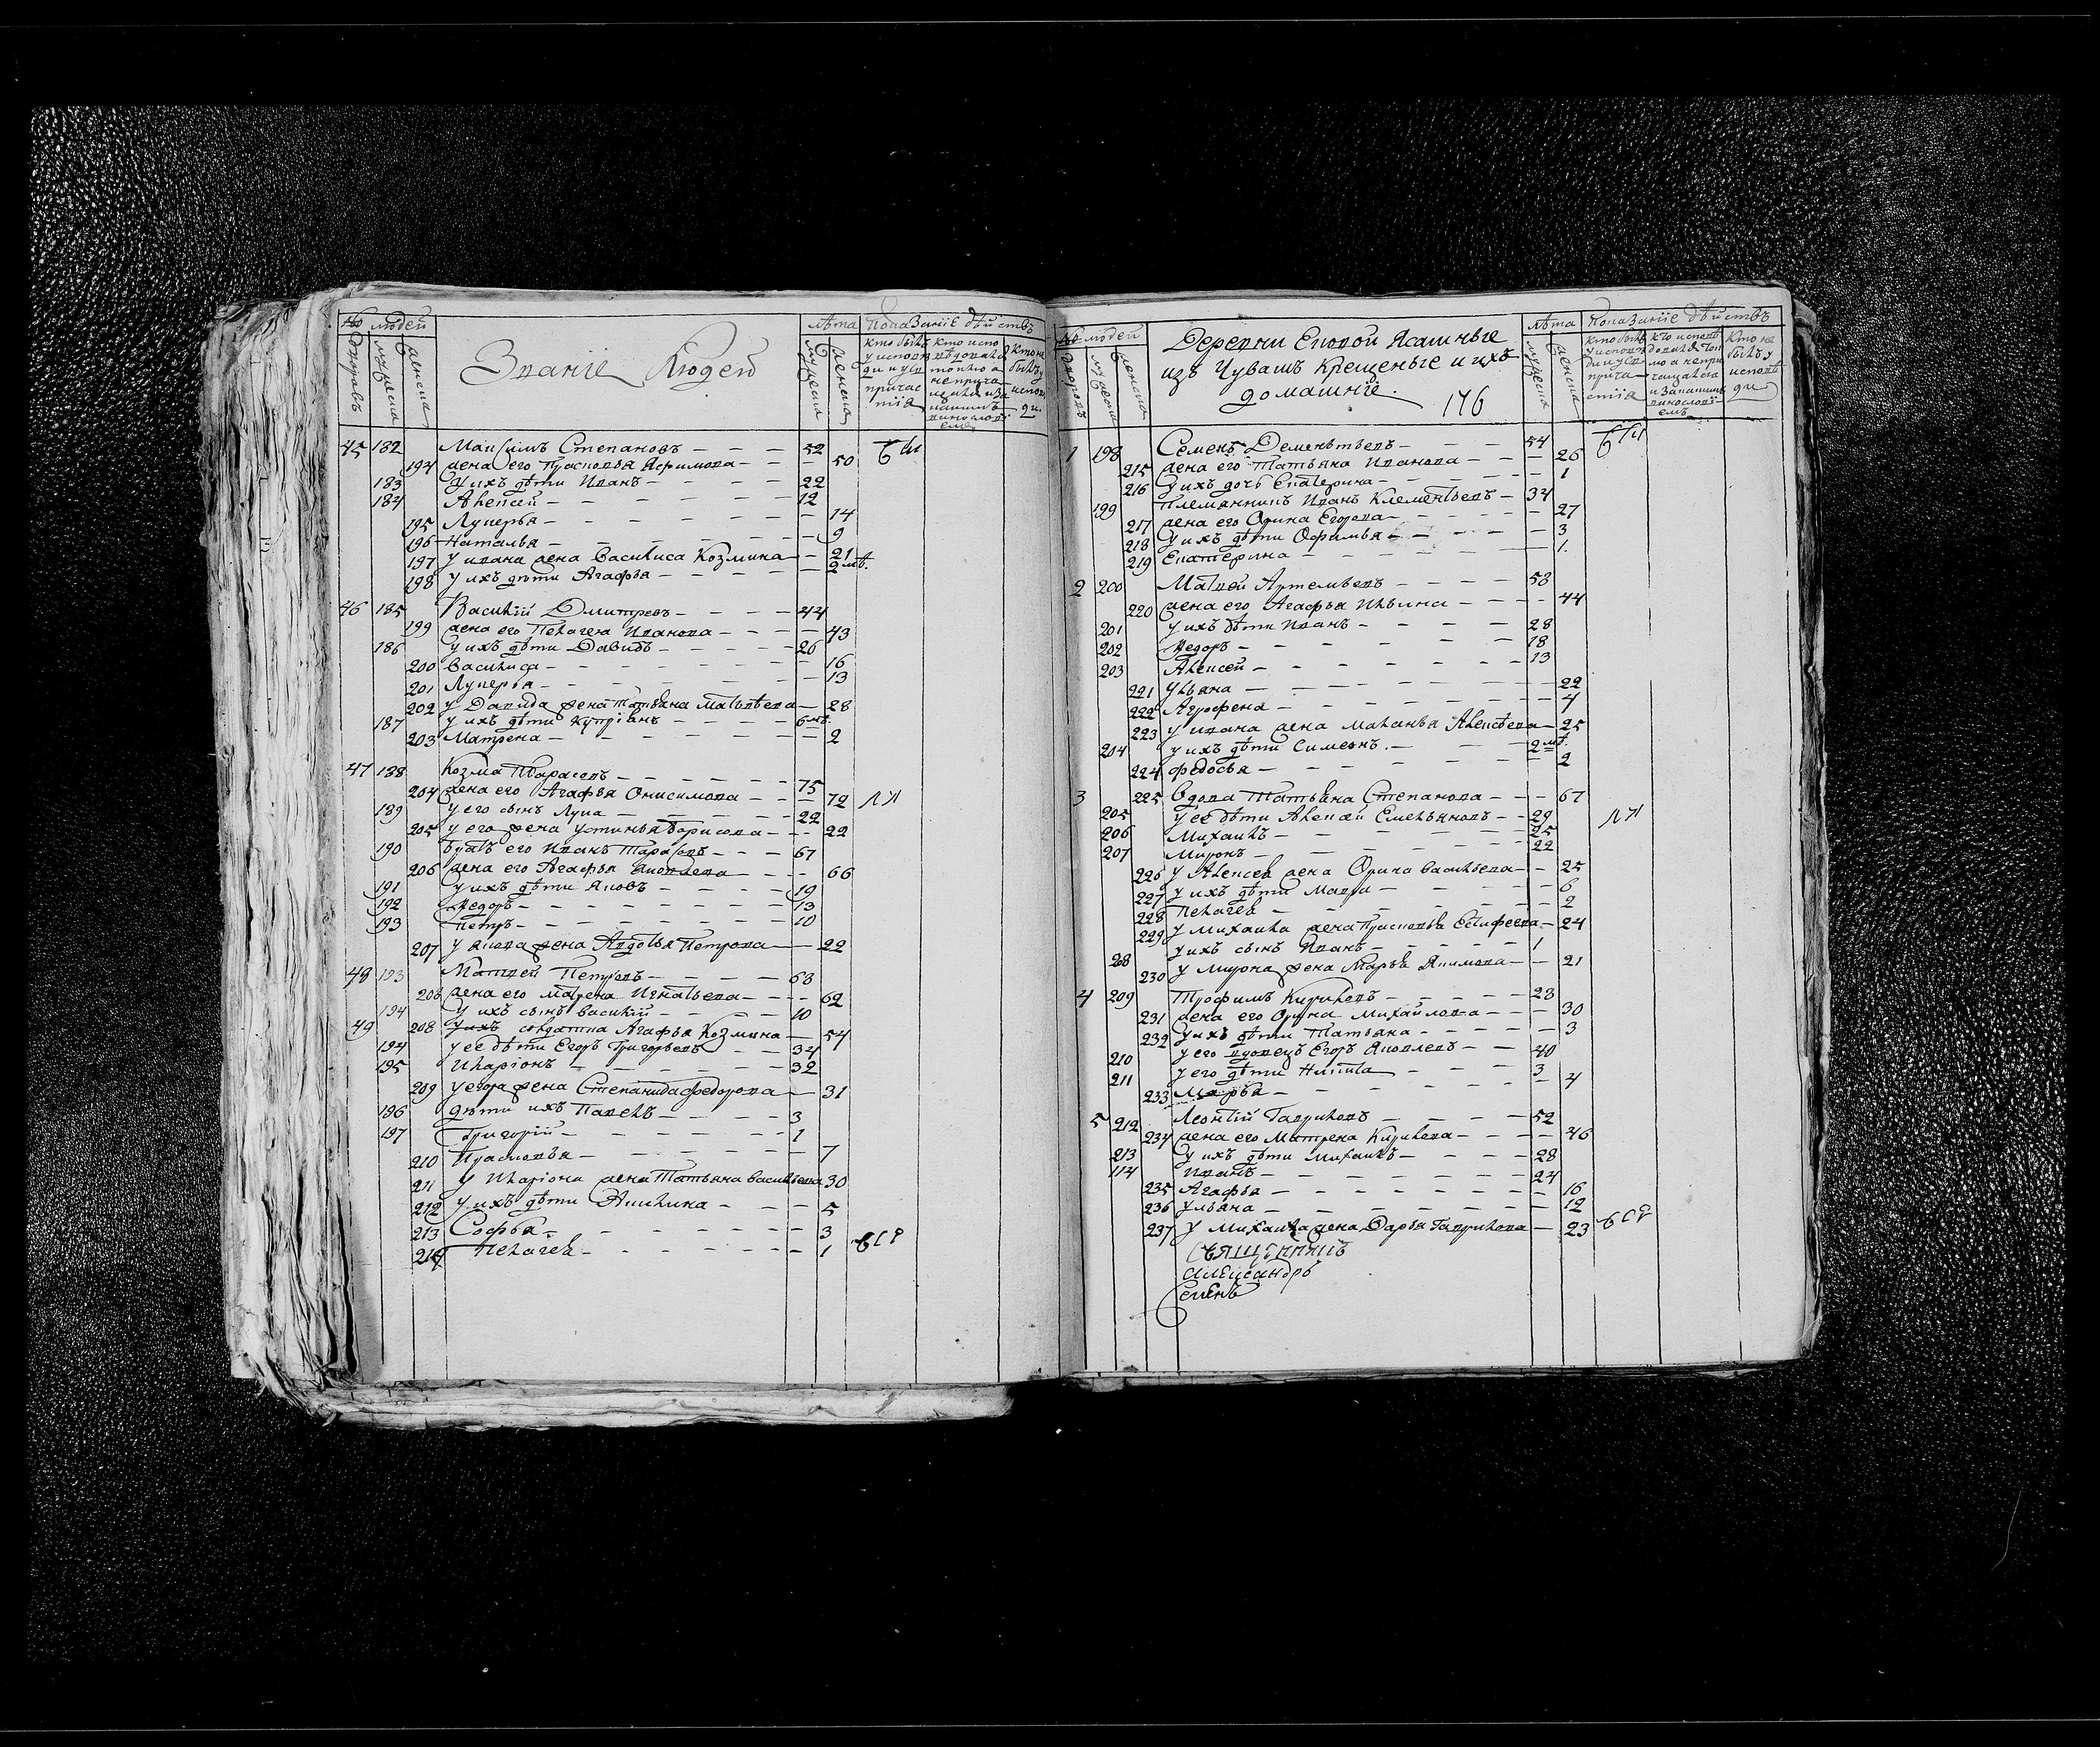 № людей
дворовъ
мужеска
женска
Званiе Людей
лѣта
мужеска
женска
Показанiе дѣйствъ
кто былъ у исповеди и у с причастiя
кто исповѣдовался токмо а не причащался и за какимъ винословiемъ
кто не былъ у исповеди
45 182 Максимъ Степановъ 52
194 жена его Прасковья Ефимова 50 были
183 у ихъ дѣти Иванъ 22
184 Алексей 12
195 Лукерья 14
196 Наталья 9
197 у ивана жена Василиса Козмина 21
198 у ихъ дѣти Агафья 2 мѣ.
46 185 Василiй Дмитревъ 44
199 жена его Пелагея Иванова 43
186 у ихъ дѣти Давидъ 26
200 Василиса 16
201 Лукерья 13
202 у Давида жена татьяна Матвѣева 28
187 у ихъ дѣти купрiянъ 6 мѣ
203 Матрена 2
47 188 Козма Тарасовъ 75
204 жена его Агафья Онисимова 72
189 у его сынъ Лука 22
205 у его жена устинья Борисова 22
190 братъ его Иванъ Тарасовъ 67
206 жена его Агафья Яковлева 66
191 у ихъ дѣти Яковъ 19
192 Федоръ 13
193 Петръ 10
207 у якова жена Авдотья Петрова 22
48 193 Матвей Петровъ 63
208 жена его матрена Игнатьева 62
194 у ихъ сынъ василiй 10
49 208 солдатка Агафья Козмина 54
194 у ее дѣти Егоръ Григорьевъ 34
195 Иларiонъ 32
209 у егора жена Степанида федорова 31
196 дѣти ихъ Павелъ 3
197 Григорiй 1
210 Прасковья 7
211 у Иларiона жена Татьяна васильева 30
212 у ихъ дѣти Акилина 5
213 Софья 3
214 Пелагея 1 все
№ людей
дворовъ
мужеска
женска
Деревни Еновой Ясашные
изъ Чувашъ Крещеные и ихъ
домашнiе.
176
лѣта
мужеска
женска
Показанiе дѣйствъ
1 198 Семенъ Дементьевъ 54
215 жена его Татьяна Иванова 26 были
216 у ихъ дочь Екатерина 1
199 племянникъ Иванъ Клементьевъ 34
217 жена его Орина Егорова 27
218 у ихъ дѣти Офимья 3
219 Екатерина 1
2 200 Матвей Артемьевъ 58
220 жена его Агафья Ильина 44
201 у ихъ дѣти Иванъ 28
202 Федоръ 18
203 Алексей 13
221 Ульяна 22
222 Агрофена 4
223 у ивана жена маланья Алексѣева 25
204 у ихъ дѣти Симеонъ. 2 мѣ.
224 федосья 2
3 225 вдова Татьяна Степанова 67
205 у ее дѣти Алексѣй Емельяновъ 29
206 Михаилъ 25
207 Миронъ 22
226 у Алексея жена Орина васильева 25
227 у ихъ дѣти Мавра 6
228 Пелагея 2
229 у Михаила жена Прасковья Евстифеева 24
28 у ихъ сынъ Иванъ 1
230 у Мирона жена Марья Якимова 21
4 209 Трофимъ Кириловъ 23
231 жена его Орина Михайлова 30
232 у ихъ дѣти Татьяна 3
210 у его вдовецъ Егоръ Яковлевъ 40
211 у его дѣти Никита 3
233 Марья 4
5 212 Леонтiй Гавриловъ 52
234 жена его Матрена Кирилова 46
213 у ихъ дѣти Михаилъ 28
114 Иванъ 24
235 Агафья 16
236 Ульяна 12
237 у Михаила жена Дарья Гаврилова 23 все
священникъ
александръ
Семенъ